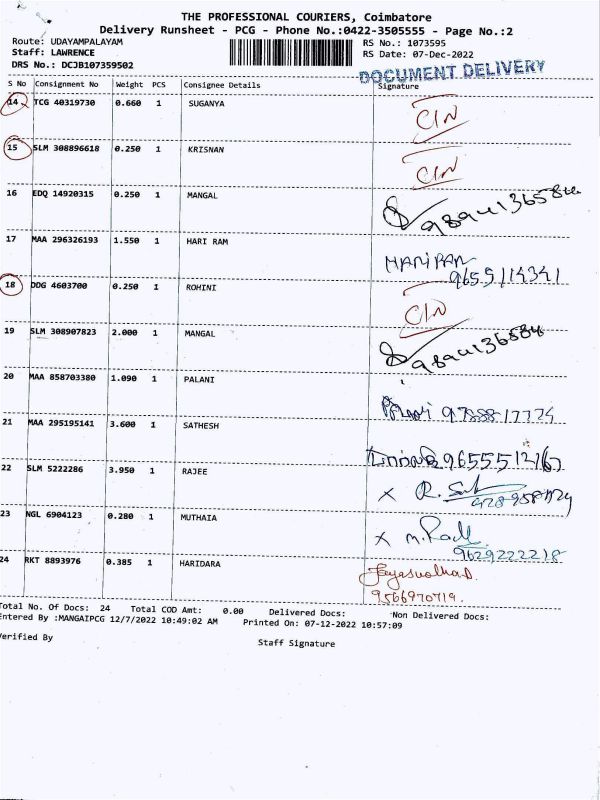 THE PROFESSIONAL COURIERS, Coimbatore
Delivery Runsheet - PCG - Phone No.:0422-3505555 - Page No.:2
Route: UDAYAMPALAYAM RS No.: 1073595
Staff: LAWRENCE RS Date: 07-Dec-2022
DRS No.: DCJB107359502 DOCUMENT DELIVERY
S No Consignment No Weight PCS Consignee Details Signature
14 TCG 40319730 0.660 1 SUGANYA CIN
15 SLM 308896618 0.250 1 KRISNAN CIN
16 EDQ 14920315 0.250 1 MANGAL
17 MAA 296326193 1.550 1 HARI RAM HARIRAM
9655114341
18 DDG 4603700 0.250 1 ROHINI CIN
19 SLM 308907823 2.000 1 MANGAL 9894136584
20 MAA 858703380 1.090 1 PALANI
21 MAA 295195141 3.600 1 SATHESH
22 SLM 5222286 3.950 1 RAJEE X
23 NGL 6904123 0.280 1 MUTHAIA X
9629222218
24 RKT 8893976 0.385 1 HARIDARA
9566970719.
Total No. Of Docs: 24 Total COD Amt: 0.00 Delivered Docs: Non Delivered Docs:
Entered By :MANGAIPCG 12/7/2022 10:49:02 AM Printed On: 07-12-2022 10:57:09
Verified By Staff Signature